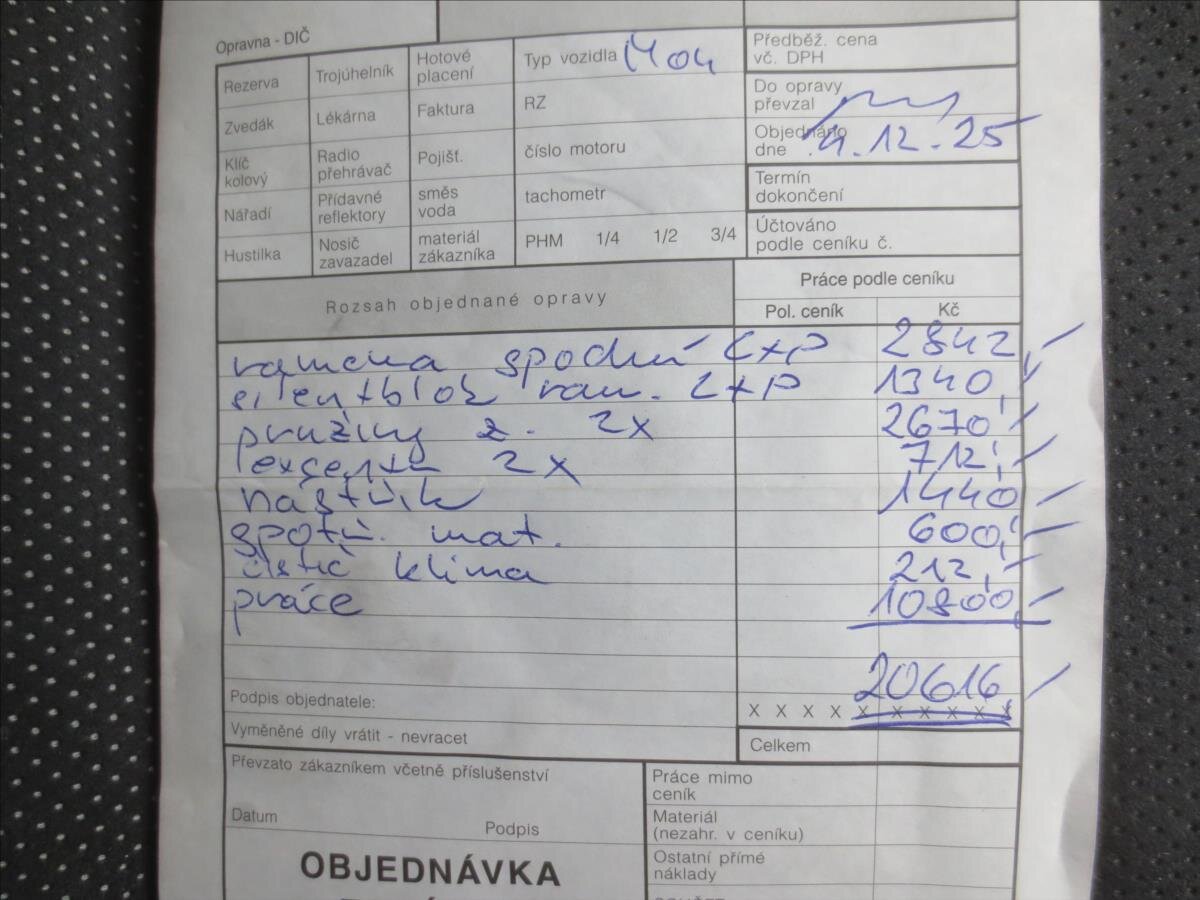 Opravna - DIČ
Rezerva Trojúhelník Hotové placení Typ vozidla
Předběž. cena vč. DPH
Zvedák Lékárna Faktura RZ
Do opravy převzal
Klíč kolový Radio přehrávač Pojišť. číslo motoru
Objednáno dne 4.12.25
Nářadí Přídavné reflektory směs voda tachometr
Termín dokončení
Hustilka Nosič zavazadel materiál zákazníka PHM 1/4 1/2 3/4
Účtováno podle ceníku č.
Rozsah objednané opravy
Práce podle ceníku
Pol. ceník Kč
ramena spodní L+P 2842,-
silentblok ram. L+P 1340,-
pružiny z. 2x 2670,-
excentr 2x 712,-
nástřik 1440,-
spotř. mat. 600,-
čistič klima 212,-
práce 10800,-
20616,-
Podpis objednatele:
X X X X X X X X X X
Vyměněné díly vrátit - nevracet
Celkem
Převzato zákazníkem včetně příslušenství
Práce mimo ceník
Datum Podpis
Materiál (nezahr. v ceníku)
OBJEDNÁVKA
Ostatní přímé náklady